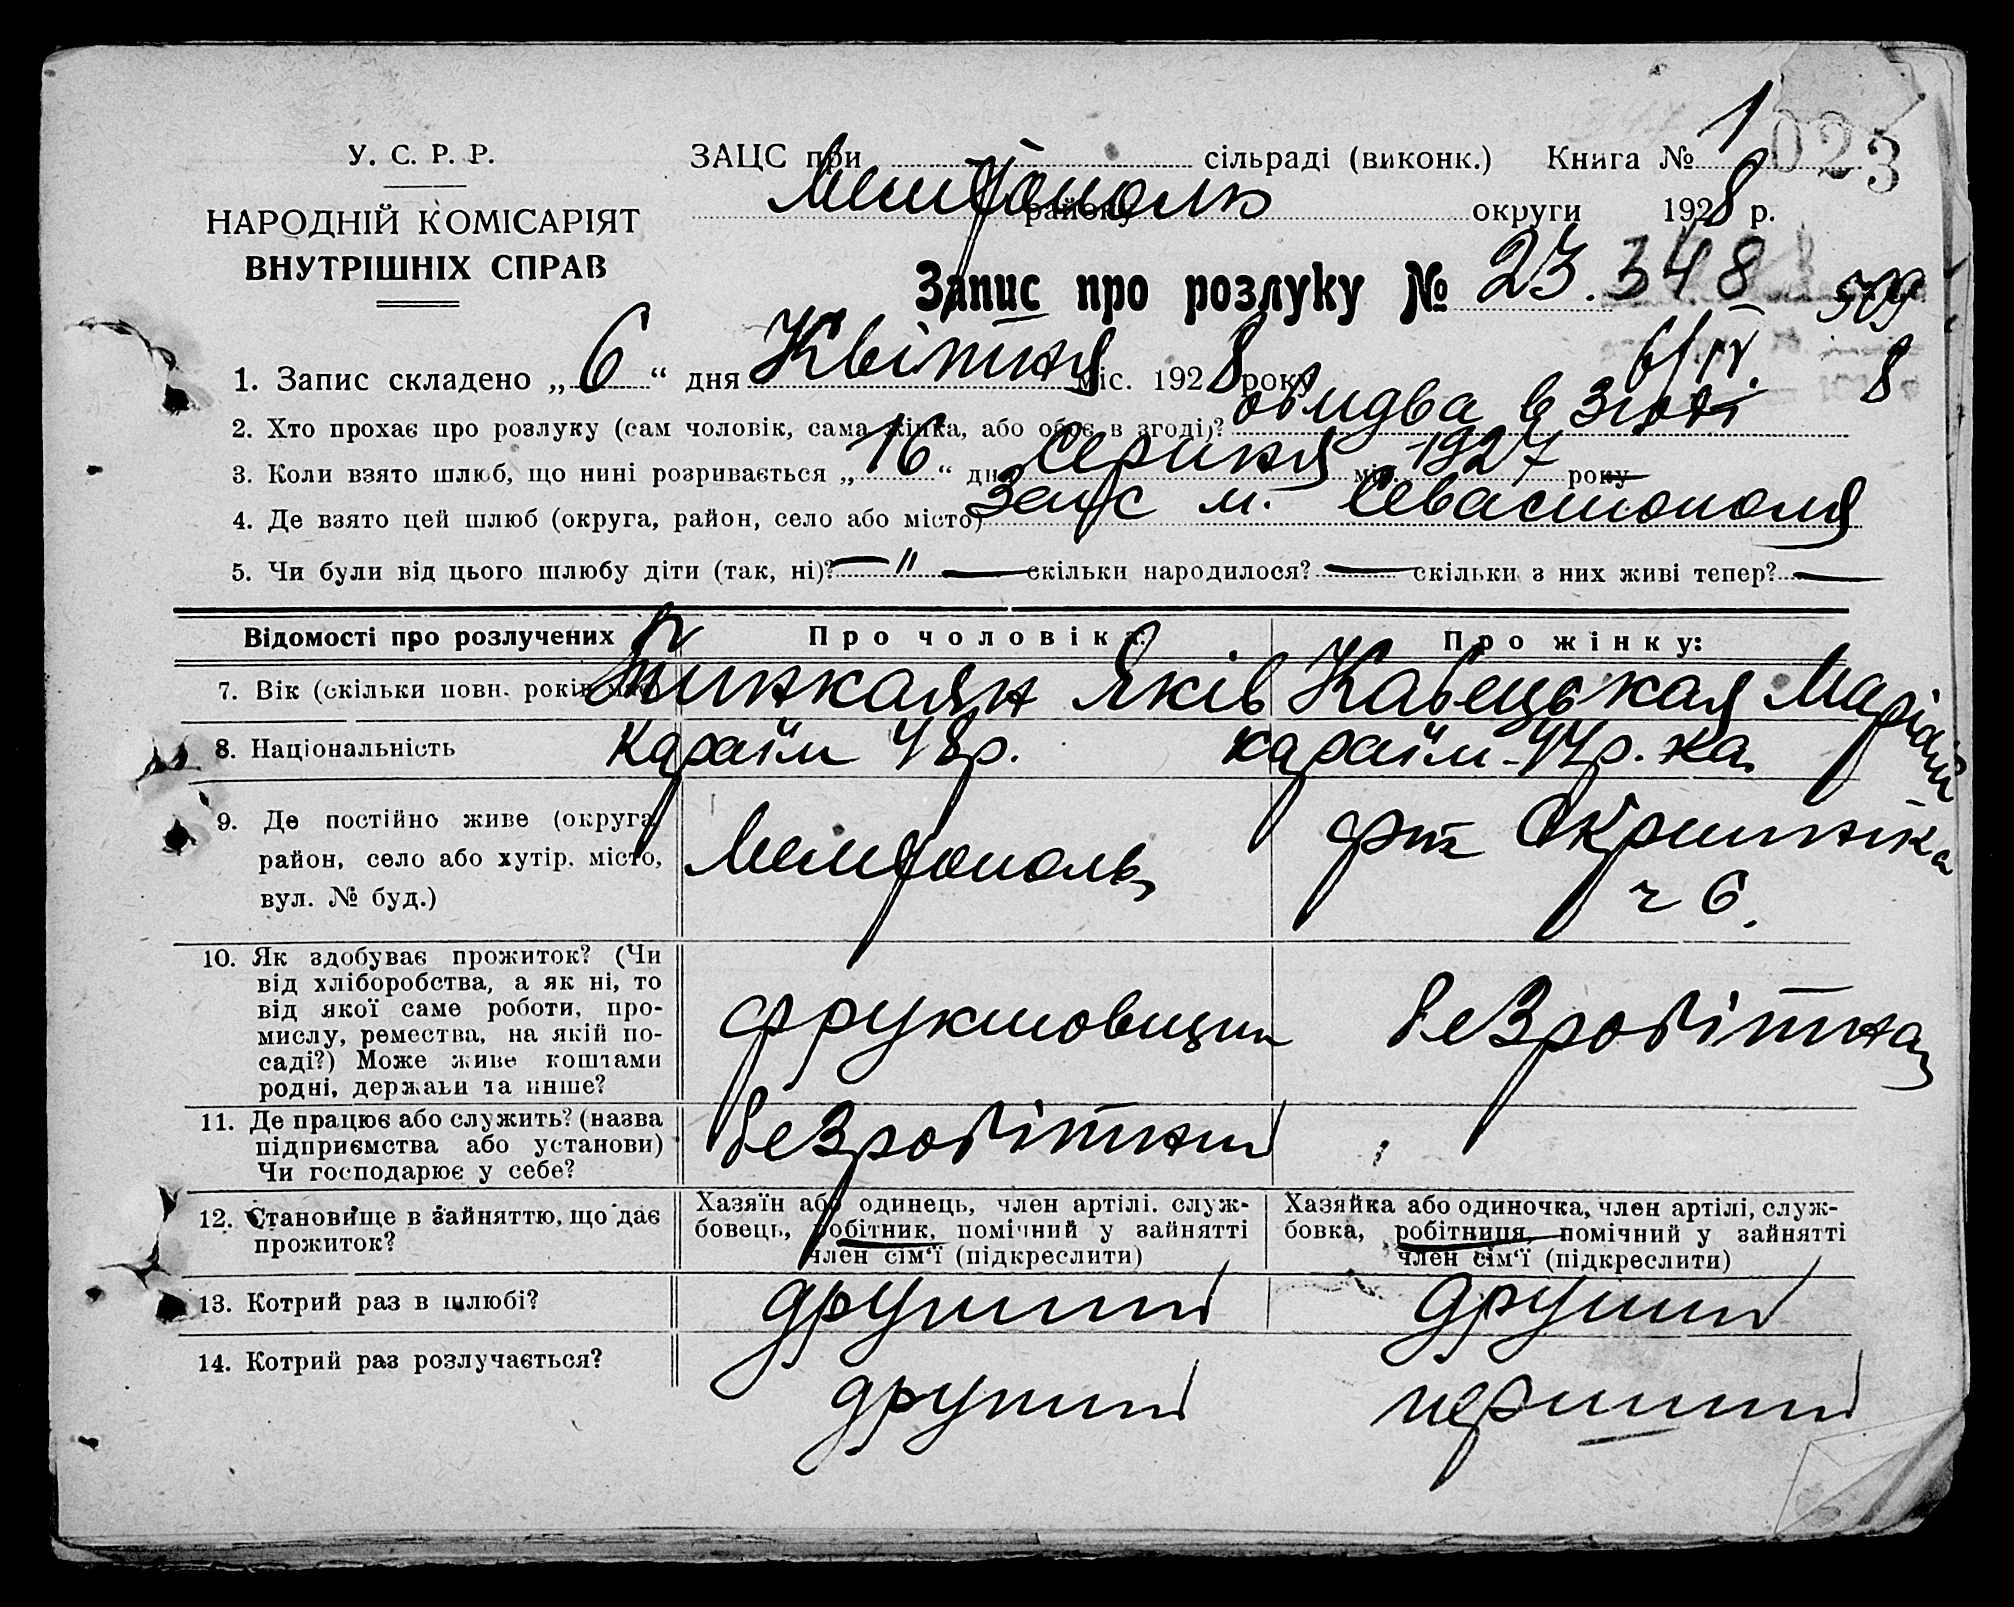 У. С. Р. Р.
НАРОДНІЙ КОМІСАРІЯТ
ВНУТРІШНІХ СПРАВ
ЗАЦС при сільраді (виконк.) Книга № 1 023
Мелітополь району округи 1928 р.
Запис про розлуку № 23. 348 509
6/IV. 8
1. Запис складено „ 6 “ дня Квітня міс. 1928 року
2. Хто прохає про розлуку (сам чоловік, сама жінка, або обоє в згоді)? обидва в згоді
3. Коли взято шлюб, що нині розривається „ 16 “ дня Серпня міс. 1927 року
4. Де взято цей шлюб (округа, район, село або місто) Загс м. Севастополя
5. Чи були від цього шлюбу діти (так, ні)? — " — скільки народилося? — скільки з них живі тепер? —
Відомості про розлучених Про чоловіка: Про жінку:
7. Вік (скільки повн. років має) Яків Кабецькая Марія
8. Національність караїм 48 р. караїм - 44 р.
9. Де постійно живе (округа, район, село або хутір, місто, вул. № буд.)
Мелітополь
ч 6.
10. Як здобуває прожиток? (Чи від хліборобства, а як ні, то від якої саме роботи, промислу, ремества, на якій посаді?) Може живе коштами родні, держави та инше?
фруктовщик безробітна
11. Де працює або служить? (назва підприємства або установи) Чи господарює у себе?
безробітний
12. Становище в зайняттю, що дає прожиток?
Хазяїн або одинець, член артілі. службовець, робітник, помічний у зайнятті член сім'ї (підкреслити)
Хазяйка або одиночка, член артілі, службовка, робітниця, помічний у зайнятті член сім'ї (підкреслити)
13. Котрий раз в шлюбі? другий другий
14. Котрий раз розлучається? другий перший